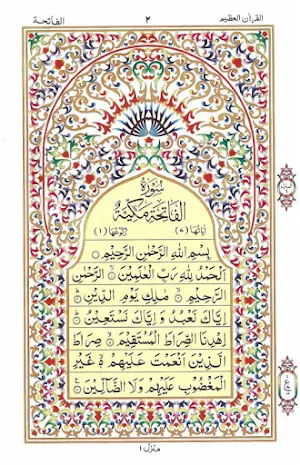 القرآن العظيم ٢ الفاتحة
سُورَةُ
الْفَاتِحَةِ مَكِّيَّةٌ
اٰيَاتُهَا (٧) رُكُوعُهَا (١)
بِسْمِ اللهِ الرَّحْمٰنِ الرَّحِيْمِ
اَلْحَمْدُ لِلّٰهِ رَبِّ الْعٰلَمِيْنَ الرَّحْمٰنِ
الرَّحِيْمِ مٰلِكِ يَوْمِ الدِّيْنِ
اِيَّاكَ نَعْبُدُ وَ اِيَّاكَ نَسْتَعِيْنُ
اِهْدِنَا الصِّرَاطَ الْمُسْتَقِيْمَ صِرَاطَ
الَّذِيْنَ اَنْعَمْتَ عَلَيْهِمْ غَيْرِ
الْمَغْضُوْبِ عَلَيْهِمْ وَلَا الضَّآلِّيْنَ
منزل ١